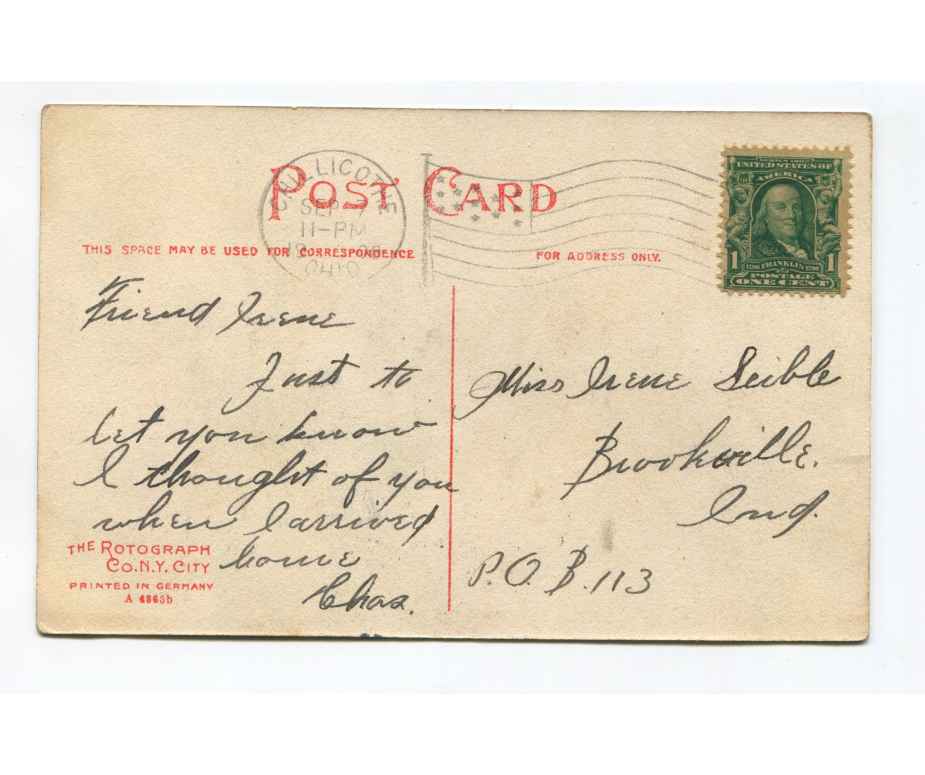 POST CARD
CHILLICOTHE
SEP 7
11-PM
OHIO
THIS SPACE MAY BE USED FOR CORRESPONDENCE
FOR ADDRESS ONLY.
UNITED STATES OF
AMERICA
1 FRANKLIN 1
POSTAGE
ONE CENT
Friend Irene
Just to
let you know
I thought of you
when I arrived
home
Chas.
Miss Irene Seible
Brookville.
Ind.
P.O.B. 113
THE ROTOGRAPH
CO. N.Y. CITY
PRINTED IN GERMANY